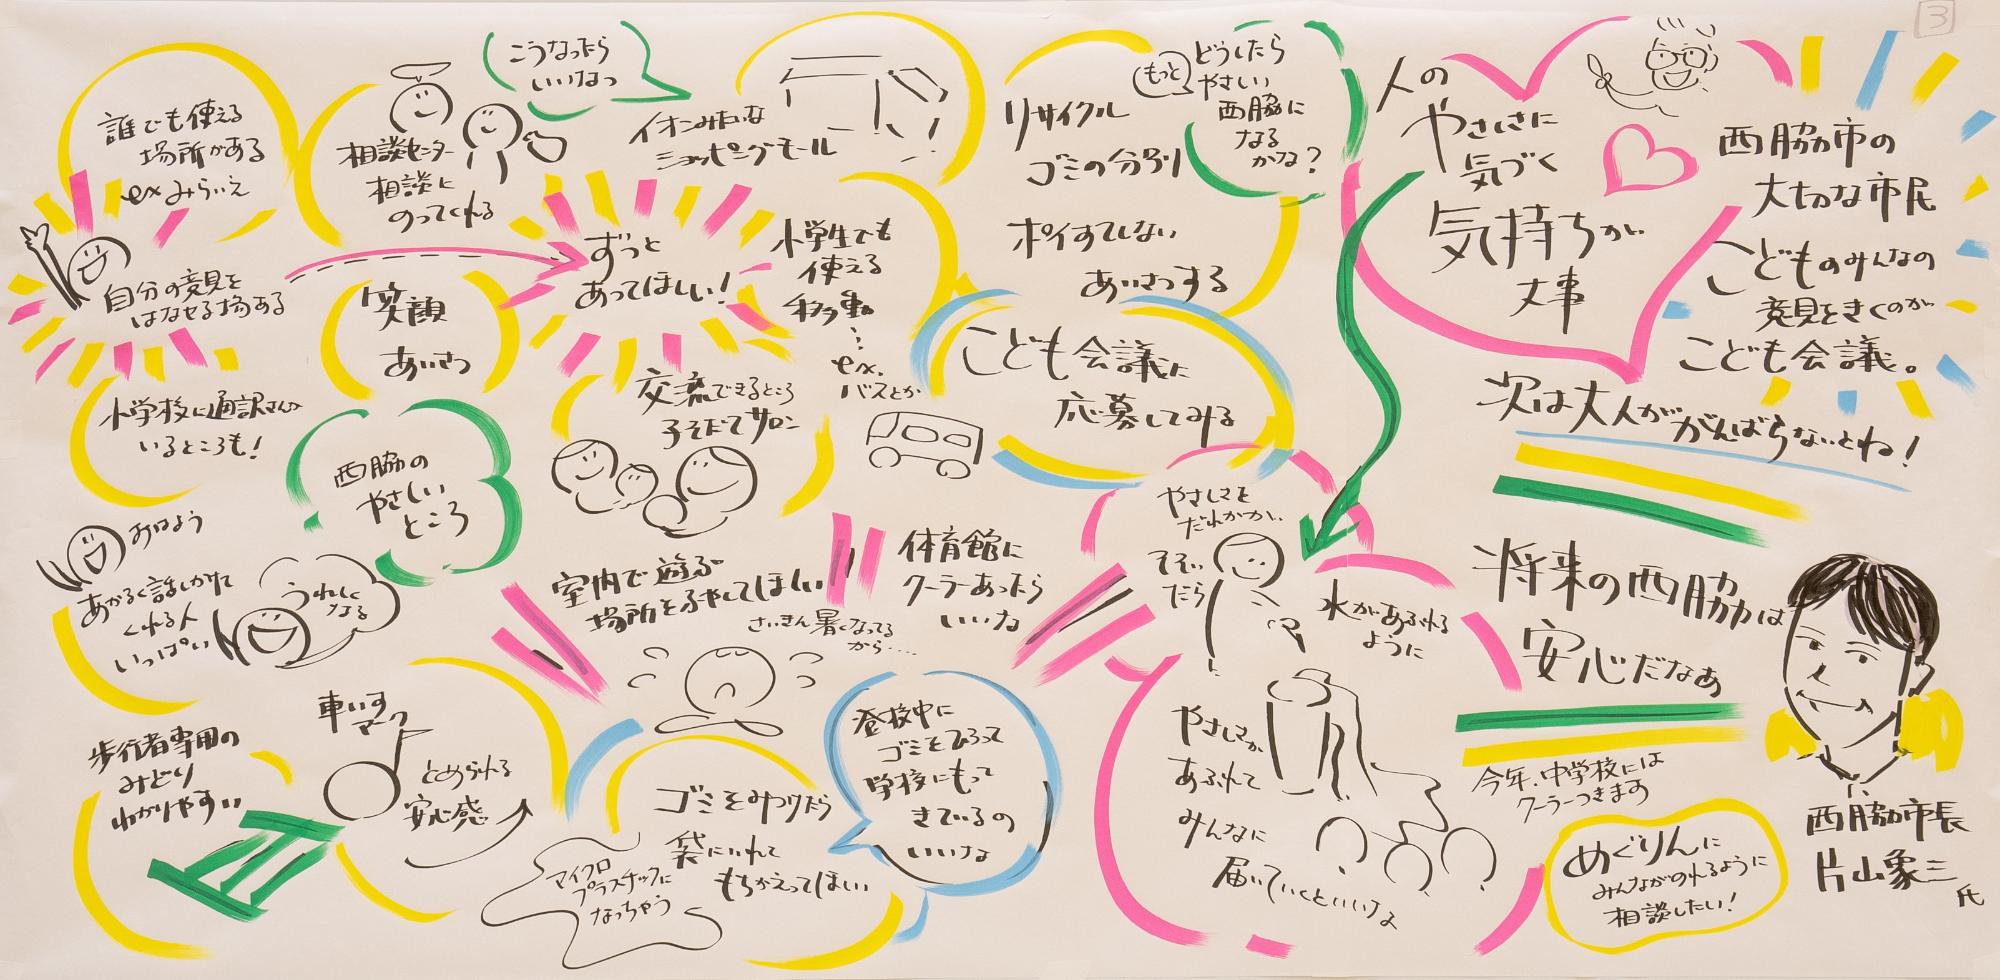 3
誰でも使える
場所がある
ex みらいえ
相談センター
相談に
のってくれる
こうなったら
いいなっ
イオンみたいな
ショッピングモール
リサイクル
ゴミの分別
もっと
どうしたら
やさしい
西脇に
なる
かな？
人の
やさしさに
気づく
気持ちが
大事
西脇市の
大切な市民
こどものみんなの
意見をきくのが
こども会議。
次は大人ががんばらないとね！
自分の意見を
はなせる場ある
笑顔
あいさつ
ずっと
あってほしい！
小学生でも
使える
移動
ex.
バスとか
ポイすてしない
あいさつする
こども会議に
応募してみる
小学校に通訳さんの
いるところも！
西脇の
やさしい
ところ
交流できるところ
子そだてサロン
おはよう
あかるく話しかけて
くれる人
いっぱい
うれしく
なる
室内で遊ぶ
場所をふやしてほしい
さいきん暑くなってる
から....
体育館に
クーラーあったら
いいな
やさしさを
だれかが
そそい
だら
水があふれる
ように
やさしさが
あふれて
みんなに
届いていくといいな
将来の西脇は
安心だなあ
今年、中学校には
クーラーつきます
めぐりんに
みんながのれるように
相談したい！
西脇市長
片山象三
氏
歩行者専用の
みどり
わかりやすい
車いす
マーク
とめられる
安心感
ゴミをみつけたら
袋にいれて
もちかえってほしい
マイクロ
プラスチックに
なっちゃう
登校中に
ゴミをひろって
学校にもって
きているの
いいな